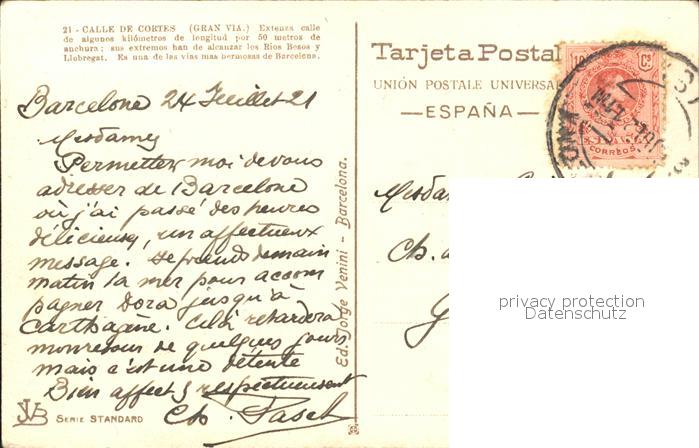 21 - CALLE DE CORTES (GRAN VIA.) Extensa calle
de algunos kilómetros de longitud por 50 metros de
anchura; sus extremos han de alcanzar los Rios Besos y
Llobregat. Es una de las vias mas hermosas de Barcelona.
Barcelone 24 Juillet 21
Mesdames
Permettez moi de vous
adresser de Barcelone
où j'ai passé des heures
délicieuses, un affectueux
message. Je prends demain
matin la mer pour accom
pagner Dora jusqu'à
Carthagène. Cela retardera
mon retour de quelques jours
mais c'est une détente
Bien affect & respectueusement
Ch. Pasch
JVB SERIE STANDARD
Ed. Jorge Venini - Barcelona.
Tarjeta Postal
UNIÓN POSTALE UNIVERSAL
—ESPAÑA—
10 Cs
CORREOS
Mesdam
Ch.
privacy protection
Datenschutz